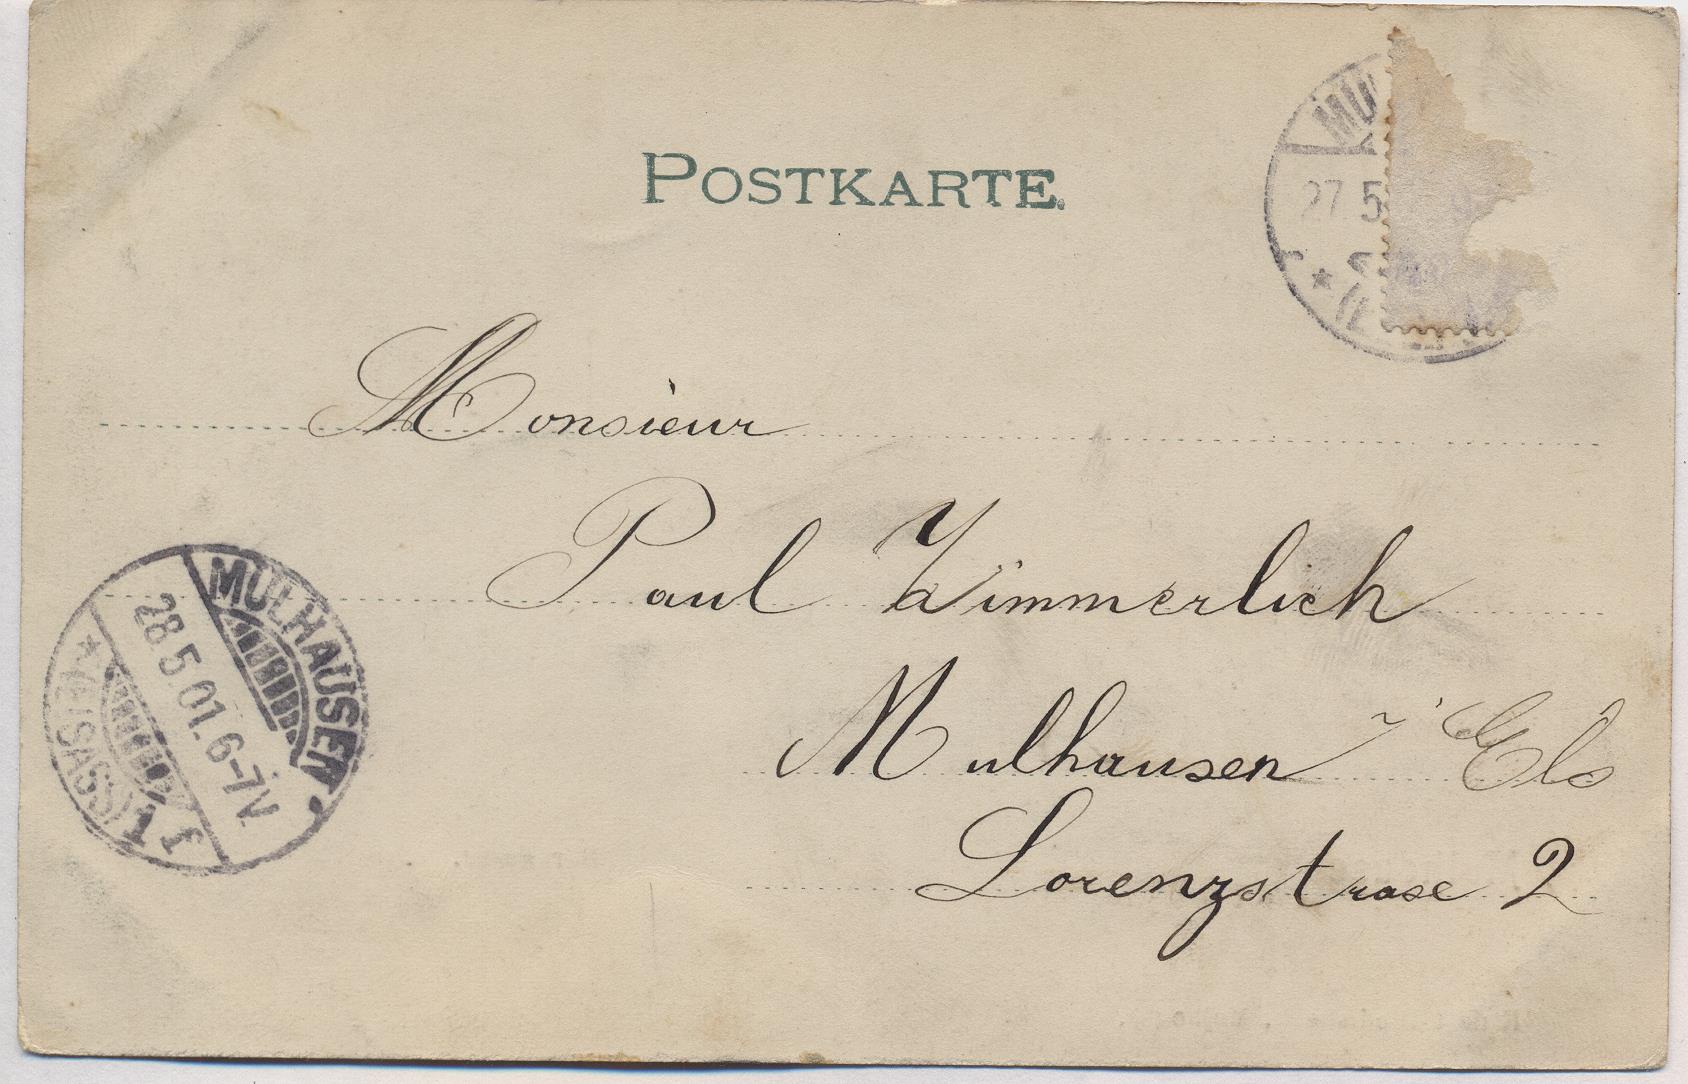 POSTKARTE.
MU
27.5
Monsieur
Paul Zimmerlich
Mulhausen i/ Els
Lorenzstrase 2
MULHAUSEN
28.5.01.6-7V.
* (ELSASS) 1 f